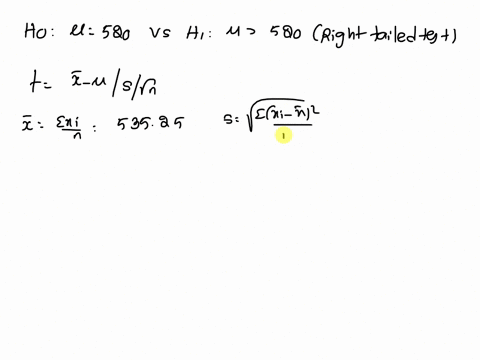 H0: μ = 580 vs H1: μ > 580 (Right tailed test)
t = x̄-μ / s/√n
x̄ = Σxi/n : 535.25 s = √Σ(xi-x̄)²